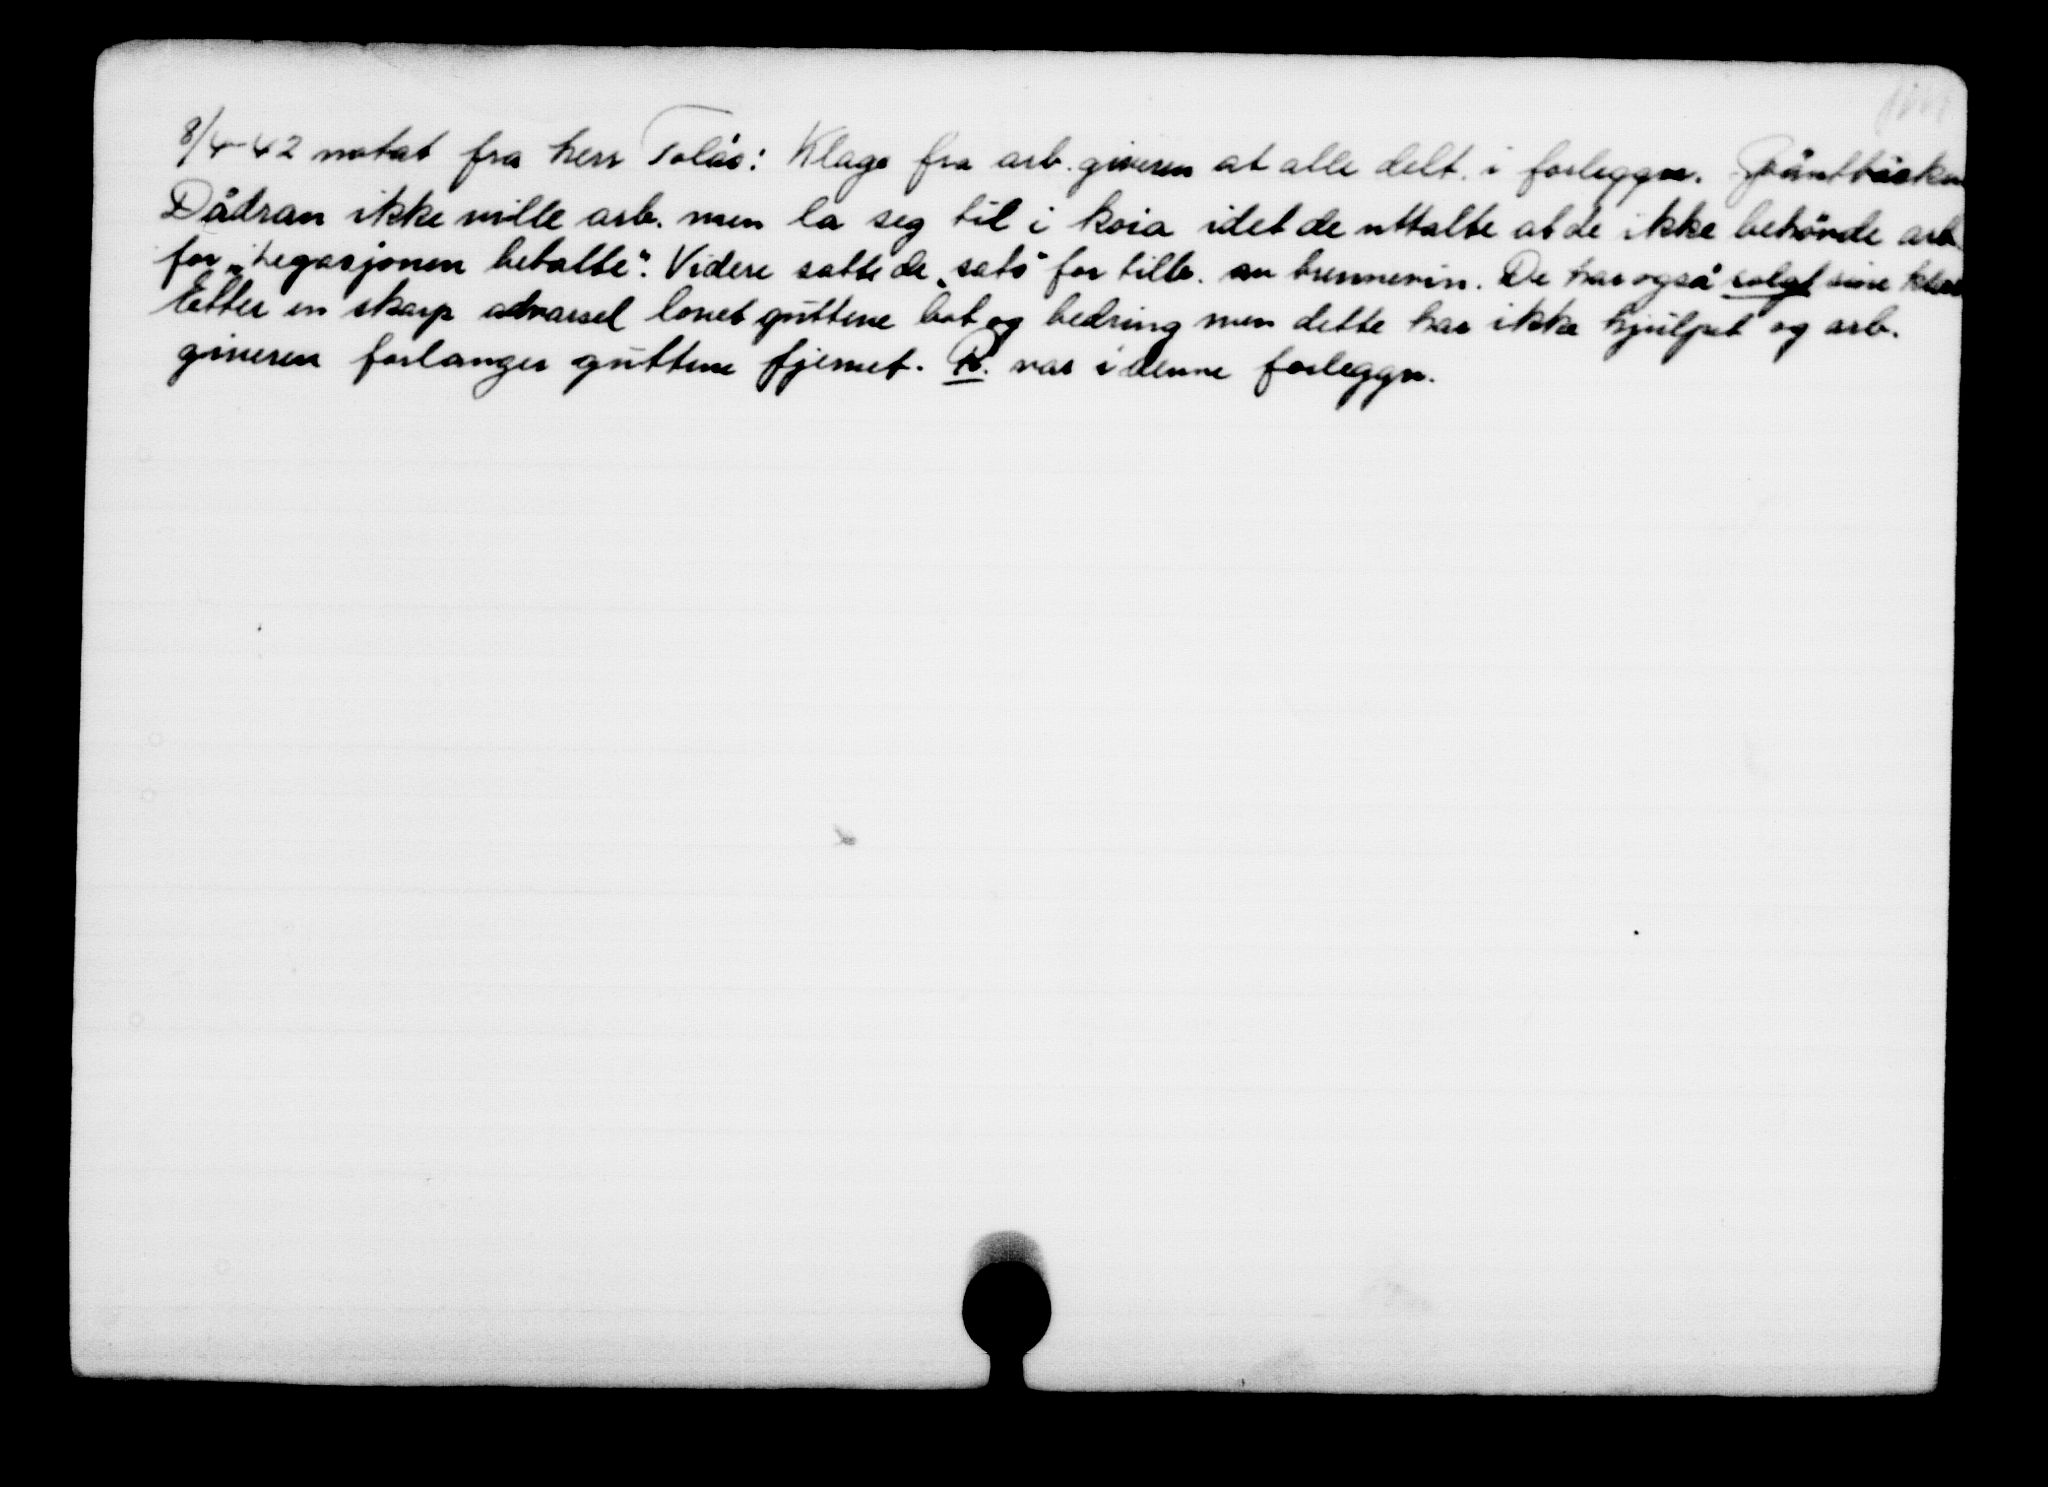 8/4-42 notat fra herr Tolås: Klage fra arb. giveren at alle delt. i forleggn.
Dådran ikke ville arb. men la seg til i koia idet de uttalte at de ikke behövde arb.
for „Legasjonen betalte". Videre satte de „sats" for tillv. av brennevin. De har også solgt sine klær
Etter en skarp advarsel lovet guttene bot og bedring men dette har ikke hjulpet og arb.
giveren forlanger guttene fjernet. R. var i denne forleggn.